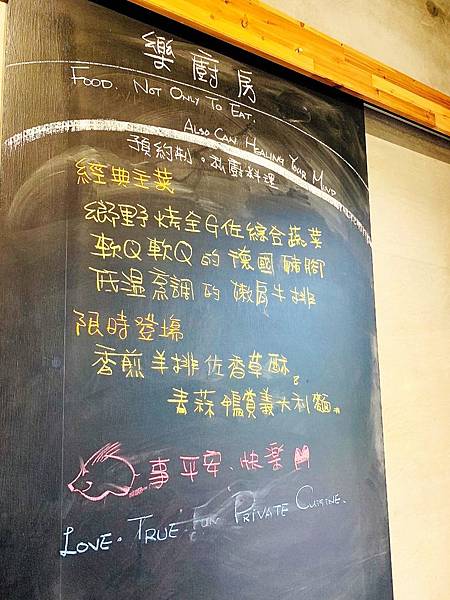 樂廚房
FOOD. NOT ONLY TO EAT.
ALSO CAN HEALING YOUR MIND
預約制。私廚料理
經典主菜
鄉野烤全G佐綜合蔬菜
軟Q軟Q的德國豬腳
低溫烹調的嫩肩牛排
限時登場
香煎羊排佐香草酥
青蒜鴨賞義大利麵
事平安、快樂
LOVE. TRUE. FUN PRIVATE CUISINE.